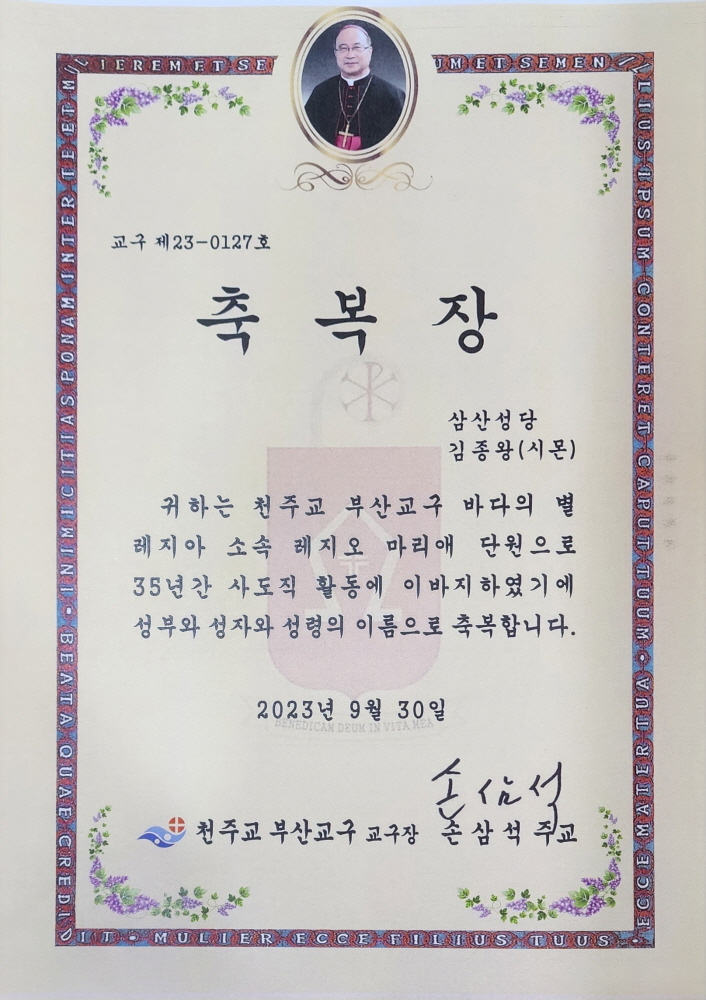 IEREM ET SE
UM ET SEMEN I
LLIUS IPSUM CONTERET CAPUT TUUM • MATER TUA ECCE
INIMICITIAS PONAM INTER TE ET MUL
BEATA QUAE CREDIDIT • MULIER ECCE FILIUS TUUS
교구 제23-0127호
축 복 장
삼산성당
김종왕(시몬)
귀하는 천주교 부산교구 바다의 별
레지아 소속 레지오 마리애 단원으로
35년간 사도직 활동에 이바지하였기에
성부와 성자와 성령의 이름으로 축복합니다.
2023년 9월 30일
BENEDICAM DEUM IN VITA MEA
손삼석
천주교 부산교구 교구장 손 삼 석 주교